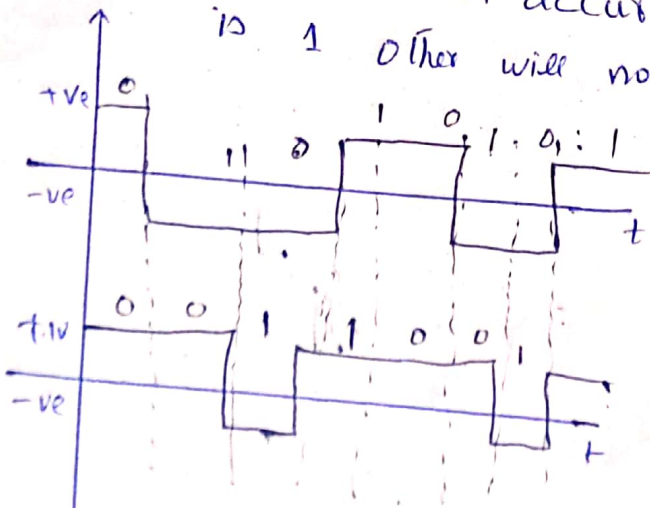 is 1 Other will no
+ve 0
1 0 1 0 1 0 1
-ve
t
0 0 1 1 0 0 1
-ve
t